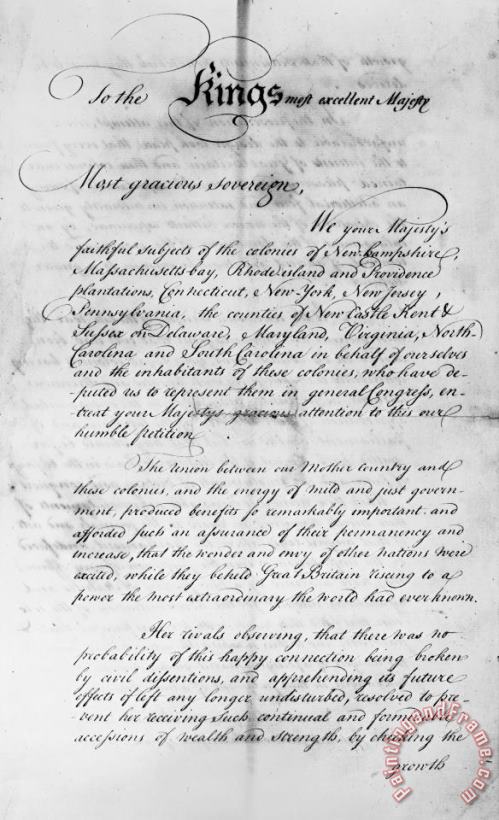 To the Kings most excellent Majesty
Most gracious Sovereign,
We your Majesty's
faithful subjects of the colonies of New-hampshire,
Massachusetts bay, Rhode island and Providence
plantations, Connecticut, New-York, New Jersey,
Pennsylvania, the counties of New Castle Kent &
Sussex on Delaware, Maryland, Virginia, North-
Carolina and South Carolina in behalf of ourselves
and the inhabitants of these colonies, who have de-
-puted us to represent them in general Congress, en-
-treat your Majestys gracious attention to this our
humble petition.
The union between our Mother Country and
these colonies, and the energy of mild and just govern-
ment, produced benefits so remarkably important and
afforded such an assurance of their permanency and
increase, that the wonder and envy of other nations were
excited, while they beheld Great Britain rising to a
power the most extraordinary the world had ever known.
Her rivals observing, that there was no
probability of this happy connection being broken
by civil dissentions, and apprehending its future
effects if left any longer undisturbed, resolved to pre-
-vent her receiving such continual and formidable
accessions of wealth and strength, by checking the
growth
PaintingandFrame.com